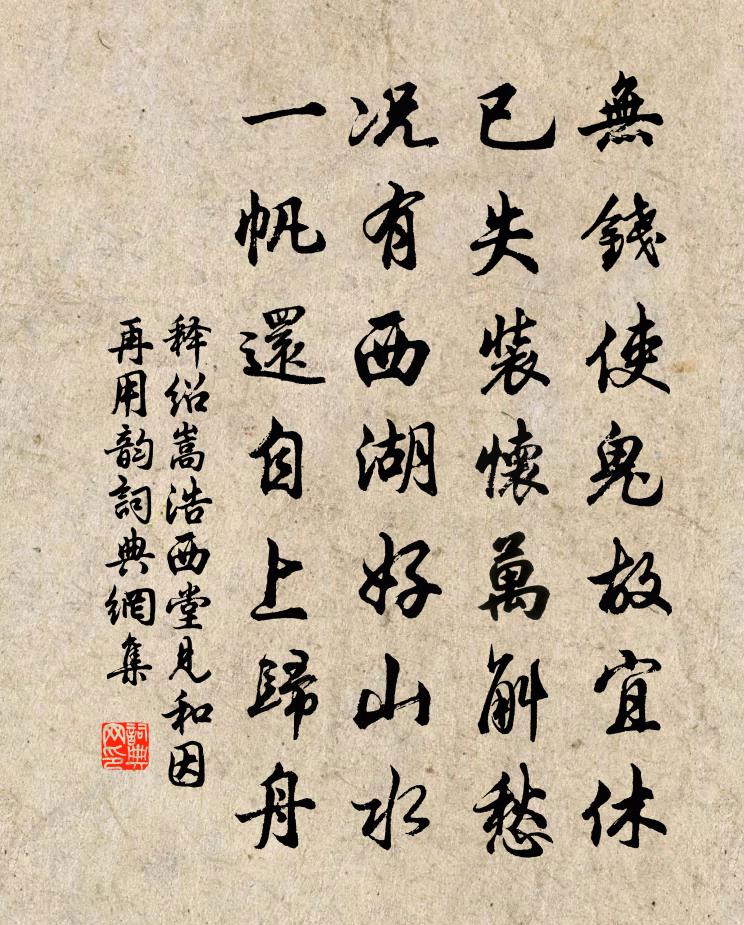 無錢使鬼故宜休
已失裝懷萬斛愁
况有西湖好山水
一帆還自上歸舟
释绍嵩浩西堂見和因
再用韵詞典網集
詞典
网印